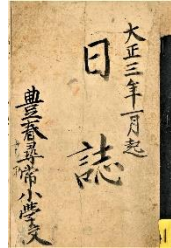 大正三年一月起
日誌
豊春尋常小学校